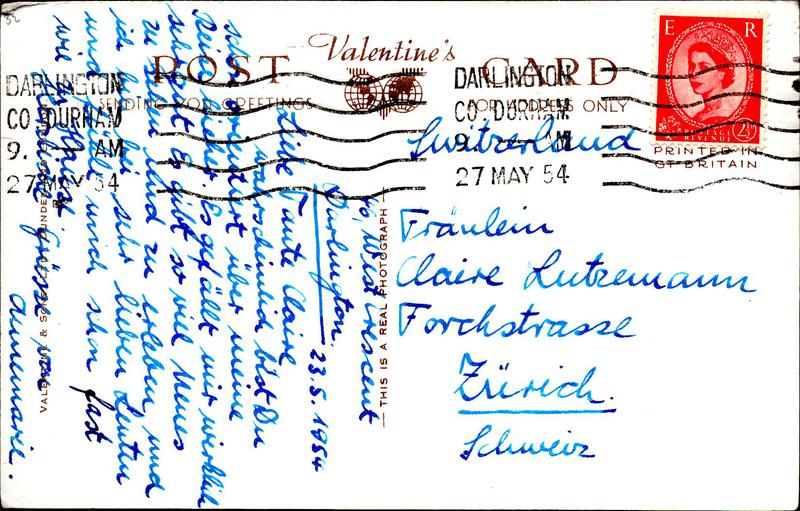 32
Valentine's
POST CARD
SENDING YOU GREETINGS
FOR ADDRESS ONLY
E R
2½
PRINTED IN
GT BRITAIN
DARLINGTON
CO DURHAM
9. AM
27 MAY 54
DARLINGTON
CO DURHAM
9. AM
27 MAY 54
THIS IS A REAL PHOTOGRAPH
VALENTINE & SONS
16, West Crescent
Darlington. 23.5.1954
Liebe Tante Claire
wahrscheinlich bist Du
schon orientiert über meine
Reise hieher. Es gefällt mir wirklich
sehr gut. Es gibt so viel Neues
zu sehen und zu erleben, und
ich bin bei sehr lieben Leuten
und fühle mich schon fast
wie
Grüsse von
Annemarie.
Switzerland
Fräulein
Claire Lutzemann
Forchstrasse
Zürich.
Schweiz